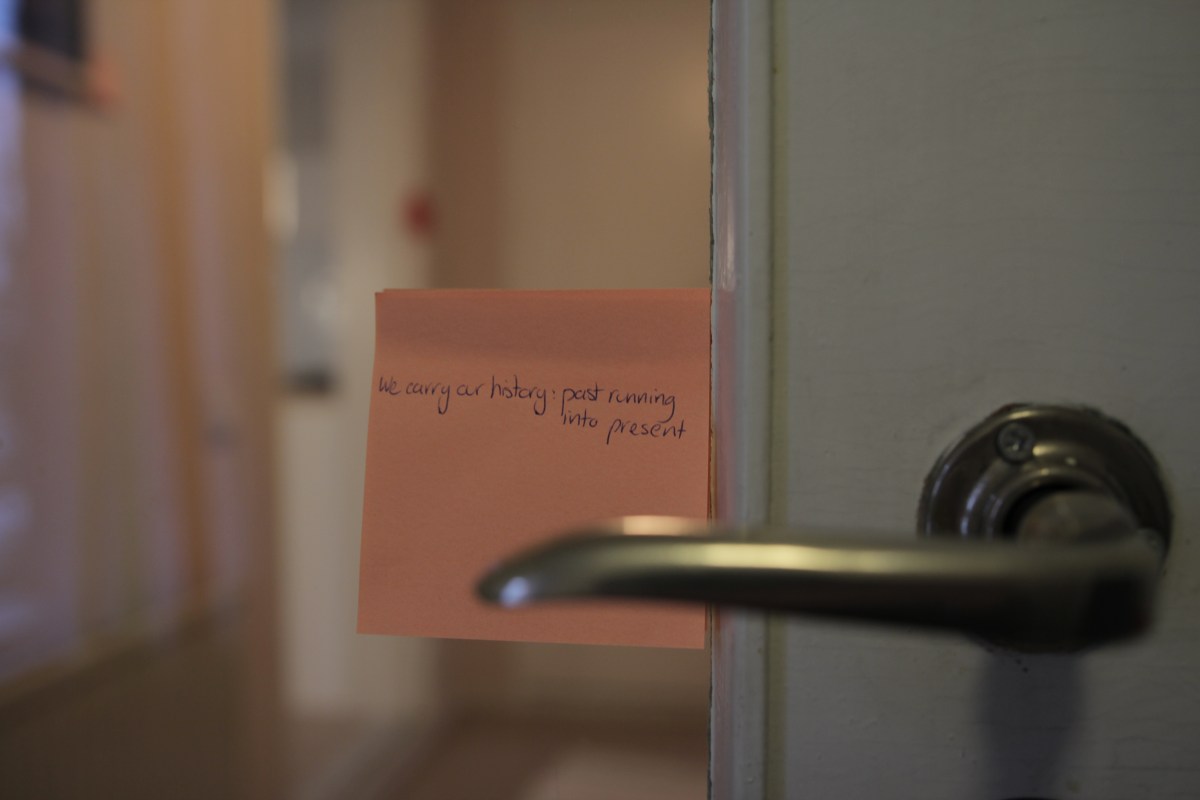 We carry our history: past running
into present